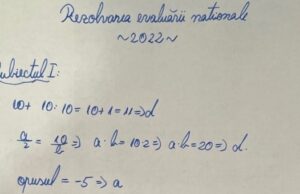 Rezolvarea evaluării naționale
~2022~
Subiectul I:
10+ 10:10=10+1=11=>d
a/2 = 10/b => a·b=10·2=>a·b=20=>d.
opusul = -5 => a